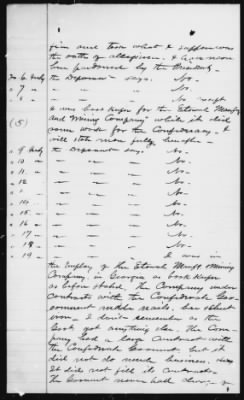 firm and took what I suppose was
the oath of allegiance. & was never
pardoned by the President.
No 6 the Deponent says. No.
" 7 " " " No.
" " " " No except
I was book keeper for the Etowah Manufg
and Mining Company while it did
some work for the Confederacy. &
will state more fully hereafter
(5)
" 9 the deponent says No.
" 10 " " " No.
" 11 " " " No.
" 12 " " " No.
" " " " No.
" 14 " " " No.
" 15 " " " No.
" 16 " " " No.
" 17 " " " No.
" 18 " " " No.
" 19 " " " I was in
the Employ of the Etowah Manft & Mining
Company in Georgia as book keeper
as before stated. The Company under
contracts with the Confederate Gov-
ernment rolled nails, bar & sheet
iron. I don't remember as the
Govt got anything else. The Com-
pany had a large contract with
the Confederate Government. but it
did not do much business.
It did not fill its contracts.
the Government never had